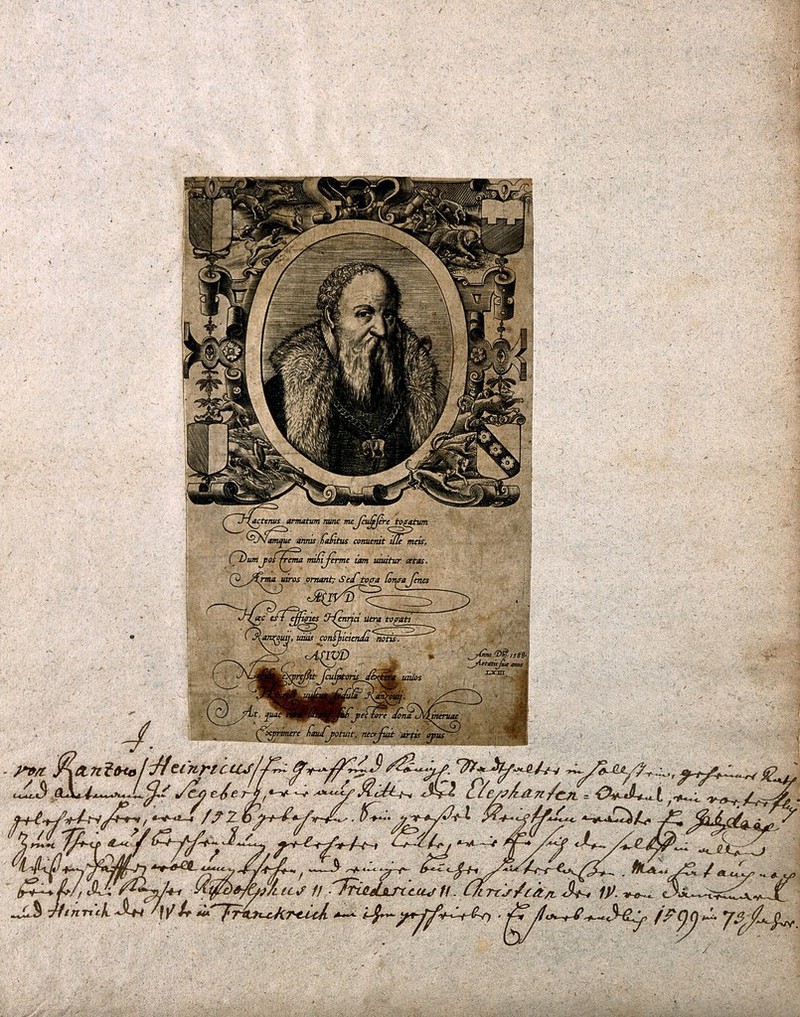 Hactenus armatum nunc me sculpsere togatum
Namque annis habitus convenit ille meis.
Dum postrema mihi ferme iam vivitur ætas.
Arma viros ornant; Sed toga longa senes
ALIVD
Hæc est effigies Henrici vera togati
Ranzovij, vivis conspicienda notis.
ALIVD
Anno Dñi 1588
Aetatis suæ anno
LXIII
expressit sculptoris dextera vivos
vultus sedula Ranzovij.
At, quæ sub pectore dona Minervæ
Exprimere haud potuit, nec fuit artis opus
von Ranzow /Heinricus/ Ein Graff und Königl. Stadthalter in Hollstein, geheimer Rath
und Amtmann zu Segeberg, wie auch Ritter des Elephanten-Ordens, ein vortreflich
gelehrter Herr, war 1526 gebohren. Sein großes Reichthum wandte Er
zum Theil auf beschenckung gelehrter Leute, wie Er sich den selbst in allen
Wißenschafften woll umgesehen, und einige bücher hinterlaßen. Man hat auch noch
briefe, die Kayser Rudolphus II. Friedericus II. Christian der IV. von Dännemarck
und Hinrich der IVte in Franckreich an ihn geschrieben. Er starb endlich 1599 im 73 Jahre.